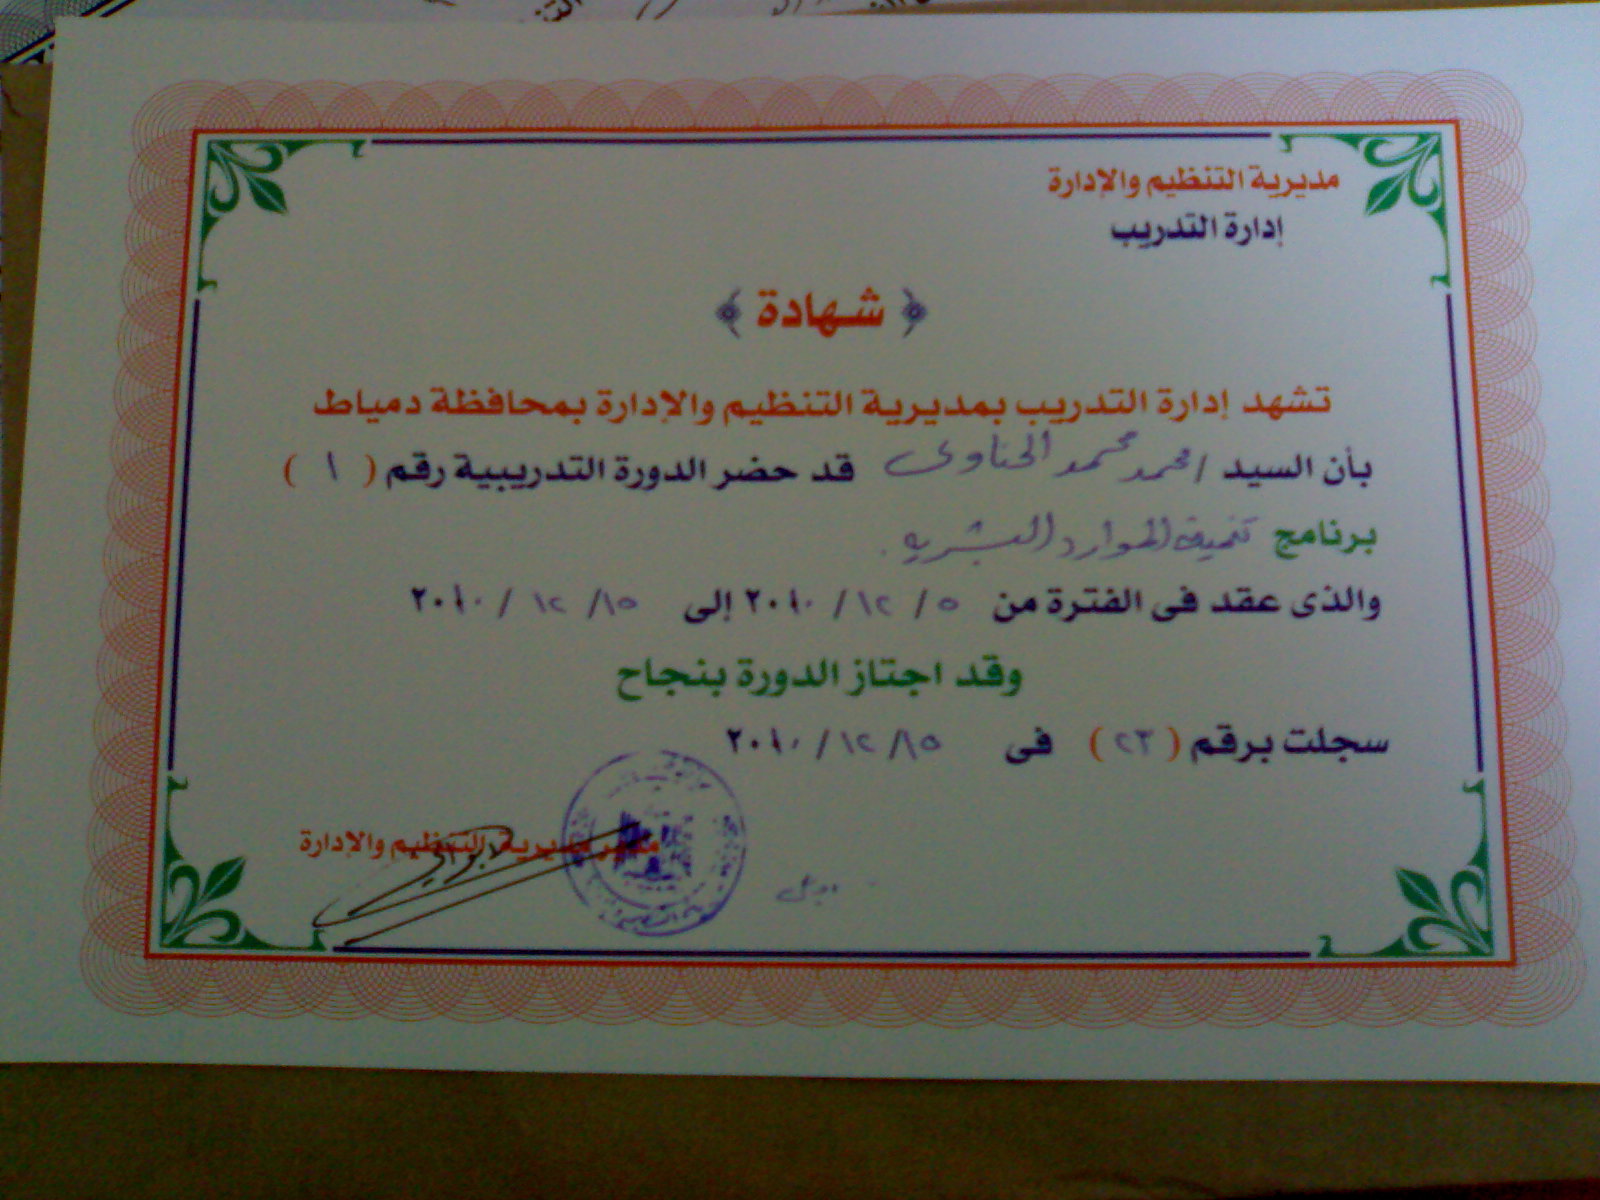 مديرية التنظيم والإدارة
إدارة التدريب
﴿ شهادة ﴾
تشهد إدارة التدريب بمديرية التنظيم والإدارة بمحافظة دمياط
بأن السيد / محمد محمد الحناوى قد حضر الدورة التدريبية رقم ( ١ )
برنامج تنمية الموارد البشرية
والذى عقد فى الفترة من ٥ / ١٢ / ٢٠١٠ إلى ١٥/ ١٢ / ٢٠١٠
وقد اجتاز الدورة بنجاح
سجلت برقم ( ٢٣ ) فى ١٥/ ١٢ / ٢٠١٠
مدير مديرية التنظيم والإدارة